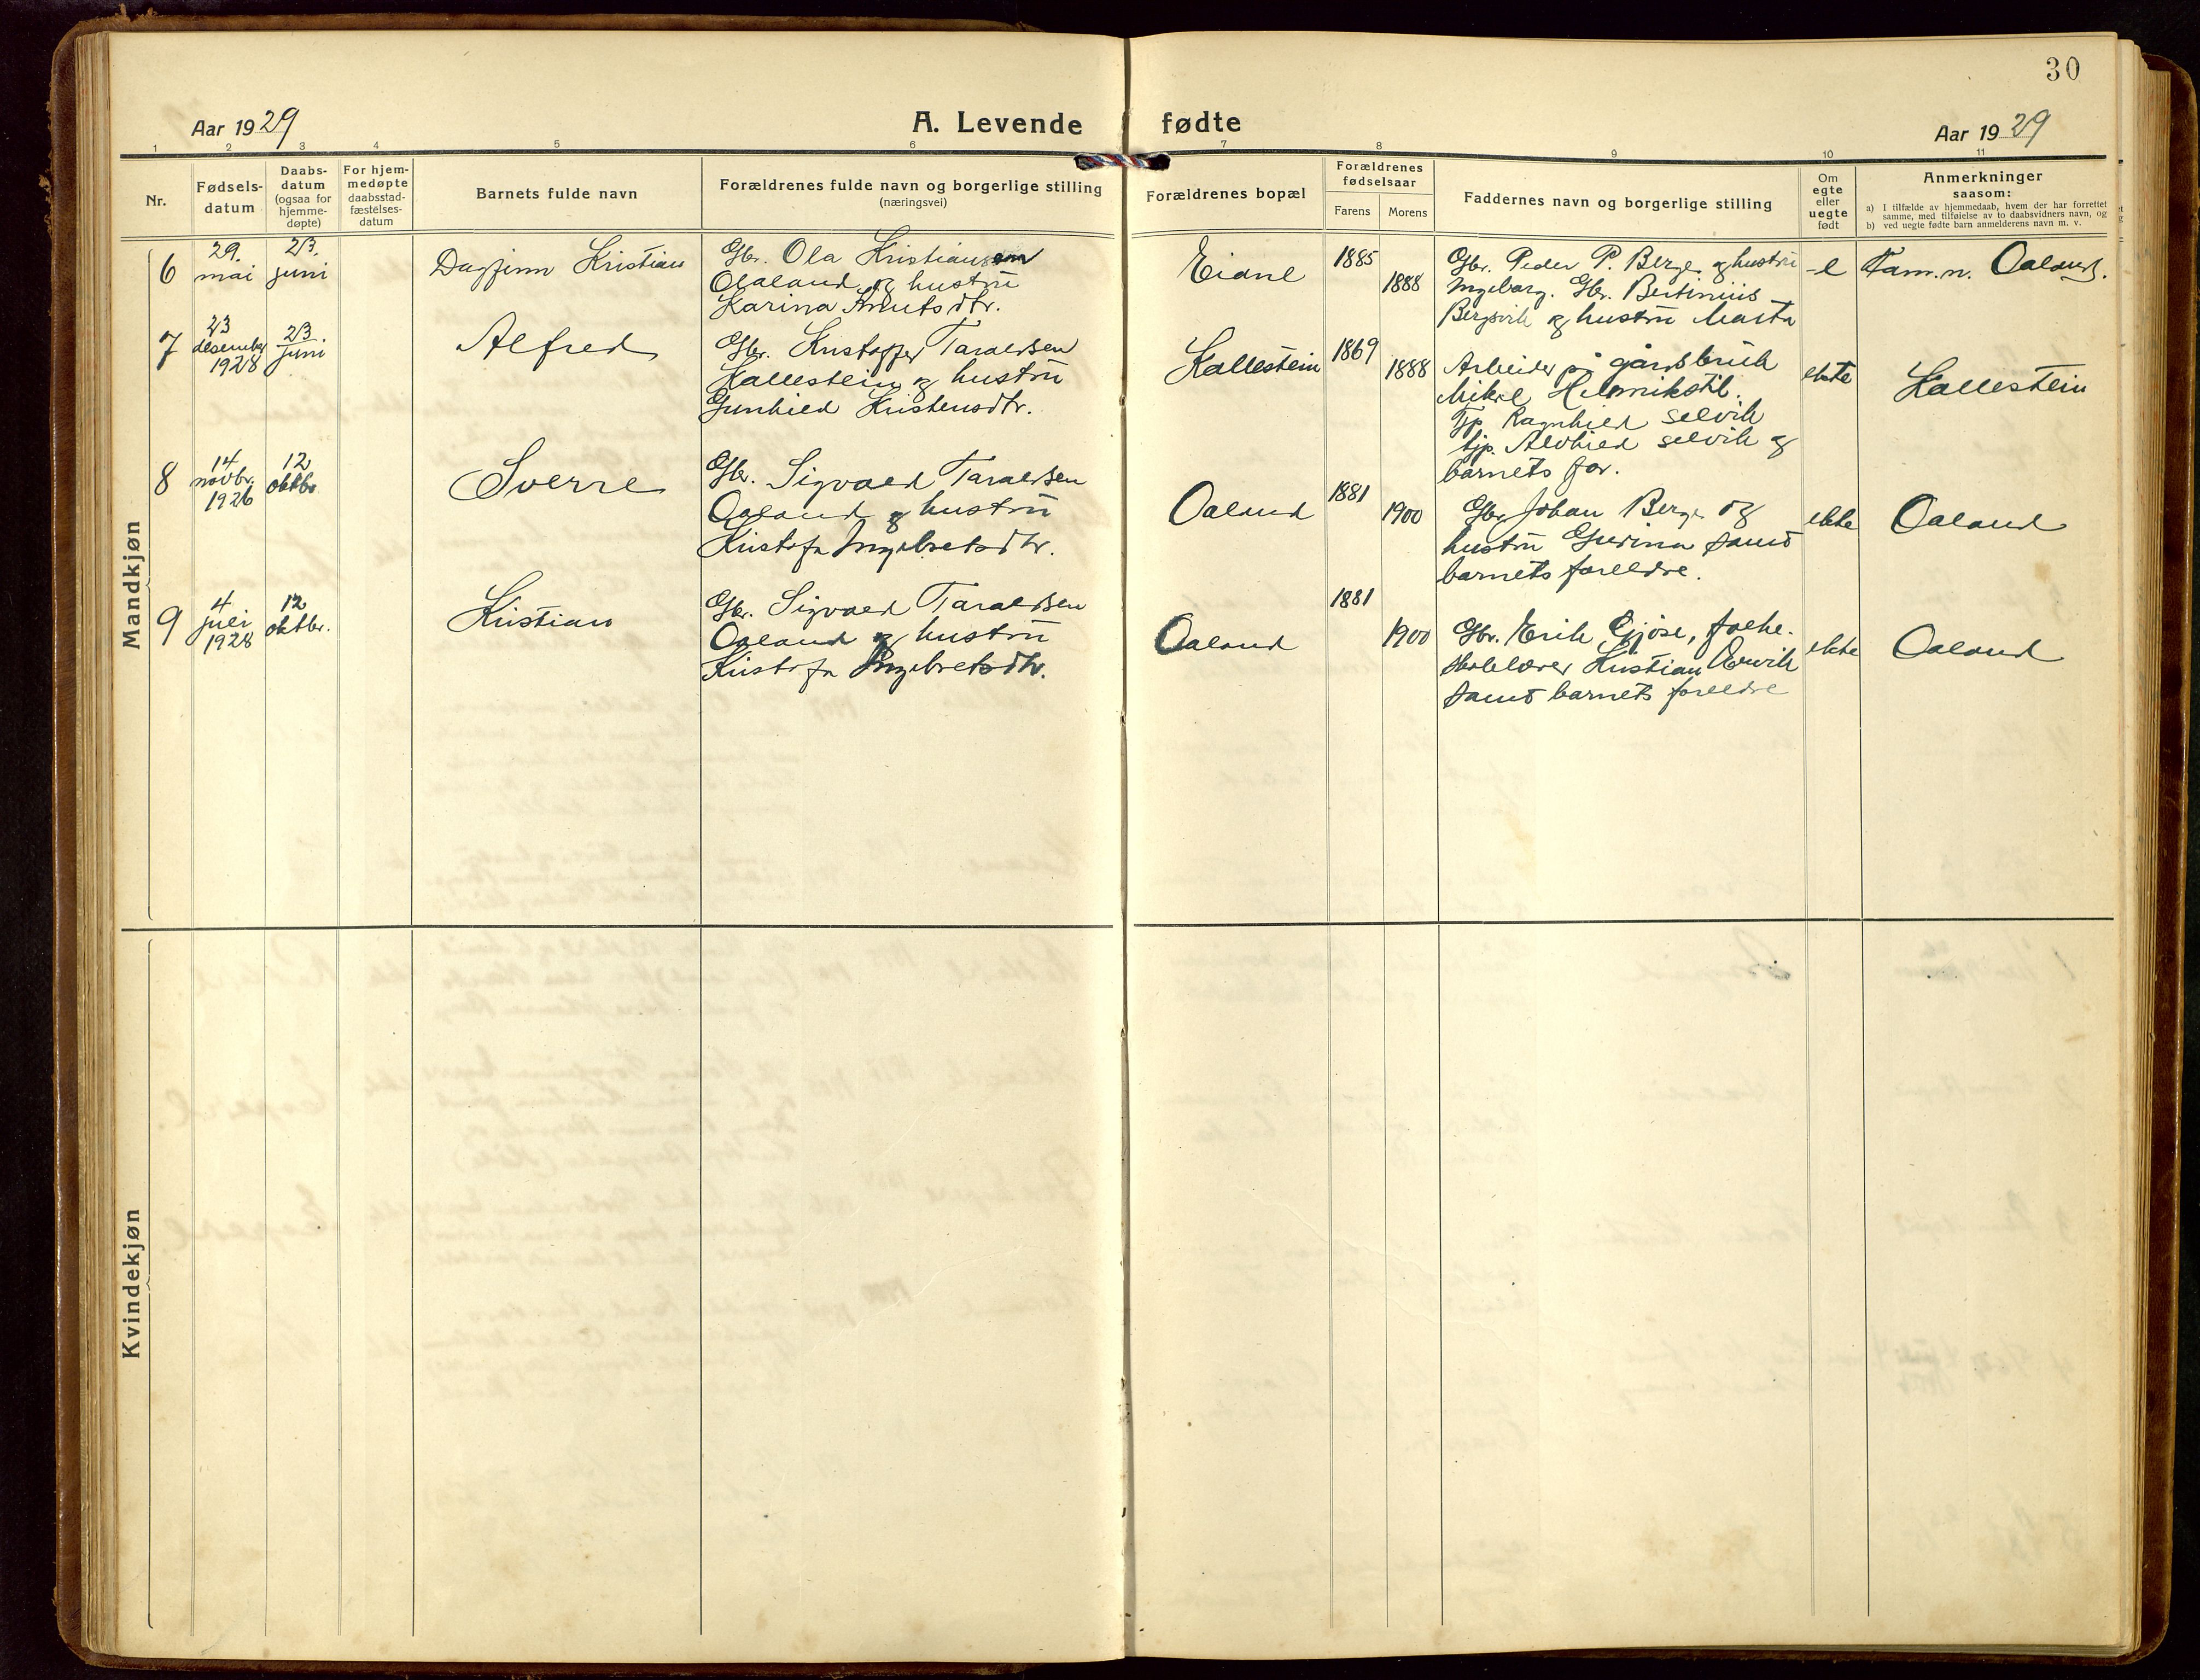 30
Aar 1929
A. Levende fødte
Aar 1929
1 2 3 4 5 6 7 8 9 10 11
Nr.
Fødsels-
datum
Daabs-
datum
(ogsaa for
hjemme-
døpte)
For hjem-
medøpte
daabsstad-
fæstelses-
datum
Barnets fulde navn
Forældrenes fulde navn og borgerlige stilling
(næringsvei)
Forældrenes bopæl
Forældrenes
fødselsaar
Farens Morens
Faddernes navn og borgerlige stilling
Om
egte
eller
uegte
født
Anmerkninger
saasom:
a) I tilfælde av hjemmedaab, hvem der har forrettet
samme, med tilføielse av to daabsvidners navn, og
b) ved uegte fødte barn anmelderens navn m. v.
Mandkjøn
6
29.
mai
23.
juni
Dagfinn Kristian
Gbr. Ola Kristiansen
Oaland og hustru
Karina Knutsdtr.
Eiane
1885
1888
Gbr. Peder P. Berge og hustru
Ingeborg. Gbr. Bertinius
Bergsvik og hustru Marta
e
Fam.n. Oaland.
7
23
desember
1928
23.
juni
Alfred
Gbr. Kristoffer Taraldsen
Kallestein og hustru
Gunhild Kristensdtr.
Kallestein
1869
1888
Arbeider på gårdsbruk
Mikal
Tjp. Ragnhild Selvik
tjp. Alvhild Selvik og
barnets far.
ekte
Kallestein
8
14
novbr.
1926
12
oktbr
Sverre
Gbr. Sigvald Taraldsen
Oaland og hustru
Kristofa Ingebretsdtr.
Oaland
1881
1900
Gbr. Johan Berge og
hustru Gurina samt
barnets foreldre.
ekte
Oaland
9
4
juli
1928
12
oktbr.
Kristian
Gbr. Sigvald Taraldsen
Oaland og hustru
Kristofa Ingebretsdtr.
Oaland
1881
1900
Gbr. Erik Gjøse, folke-
skolelærer Kristian
samt barnets foreldre
ekte
Oaland
Kvindekjøn